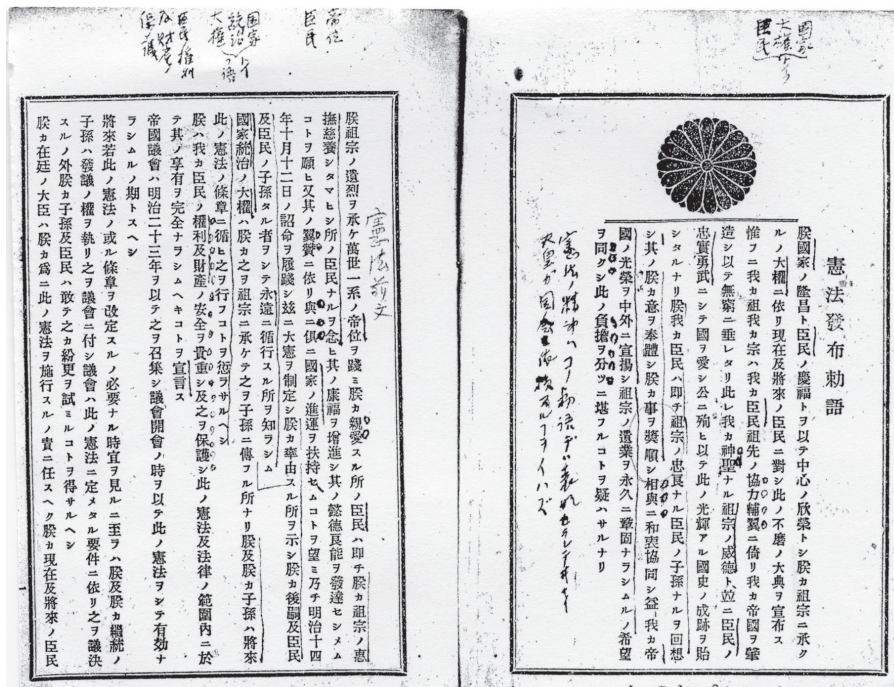 国家
大権
臣民
憲法發布勅語
朕國家ノ隆昌ト臣民ノ慶福トヲ以テ中心ノ欣榮トシ朕カ祖宗ニ承ク
ルノ大權ニ依リ現在及將來ノ臣民ニ對シ此ノ不磨ノ大典ヲ宣布ス
惟フニ我カ祖我カ宗ハ我カ臣民祖先ノ協力輔翼ニ倚リ我カ帝國ヲ肇
造シ以テ無窮ニ垂レタリ此レ我カ神聖ナル祖宗ノ威德ト竝ニ臣民ノ
忠實勇武ニシテ國ヲ愛シ公ニ殉ヒ以テ此ノ光輝アル國史ノ成跡ヲ貽
シタルナリ朕我カ臣民ハ即チ祖宗ノ忠良ナル臣民ノ子孫ナルヲ回想
シ其ノ朕カ意ヲ奉體シ朕カ事ヲ奬順シ相與ニ和衷協同シ益〻我カ帝
國ノ光榮ヲ中外ニ宣揚シ祖宗ノ遺業ヲ永久ニ鞏固ナラシムルノ希望
ヲ同クシ此ノ負擔ヲ分ツニ堪フルコトヲ疑ハサルナリ
憲法ノ精神ハコノ勅語デハ
帝位
臣民
国家
統治ノ語
大権
臣民権利
及財産ノ
保護
憲法前文
朕祖宗ノ遺烈ヲ承ケ萬世一系ノ帝位ヲ踐ミ朕カ親愛スル所ノ臣民ハ即チ朕カ祖宗ノ惠
撫慈養シタマヒシ所ノ臣民ナルヲ念ヒ其ノ康福ヲ增進シ其ノ懿德良能ヲ發達セシメム
コトヲ願ヒ又其ノ翼贊ニ依リ與ニ俱ニ國家ノ進運ヲ扶持セムコトヲ望ミ乃チ明治十四
年十月十二日ノ詔命ヲ履踐シ玆ニ大憲ヲ制定シ朕カ率由スル所ヲ示シ朕カ後嗣及臣民
及臣民ノ子孫タル者ヲシテ永遠ニ循行スル所ヲ知ラシム
國家統治ノ大權ハ朕カ之ヲ祖宗ニ承ケテ之ヲ子孫ニ傳フル所ナリ朕及朕カ子孫ハ將來
此ノ憲法ノ條章ニ循ヒ之ヲ行フコトヲ愆ラサルヘシ
朕ハ我カ臣民ノ權利及財產ノ安全ヲ貴重シ及之ヲ保護シ此ノ憲法及法律ノ範圍內ニ於
テ其ノ享有ヲ完全ナラシムヘキコトヲ宣言ス
帝國議會ハ明治二十三年ヲ以テ之ヲ召集シ議會開會ノ時ヲ以テ此ノ憲法ヲシテ有效ナ
ラシムルノ期トスヘシ
將來若此ノ憲法ノ或ル條章ヲ改定スルノ必要ナル時宜ヲ見ルニ至ラハ朕及朕カ繼統ノ
子孫ハ發議ノ權ヲ執リ之ヲ議會ニ付シ議會ハ此ノ憲法ニ定メタル要件ニ依リ之ヲ議決
スルノ外朕カ子孫及臣民ハ敢テ之カ紛更ヲ試ミルコトヲ得サルヘシ
朕カ在廷ノ大臣ハ朕カ爲ニ此ノ憲法ヲ施行スルノ責ニ任スヘク朕カ現在及將來ノ臣民